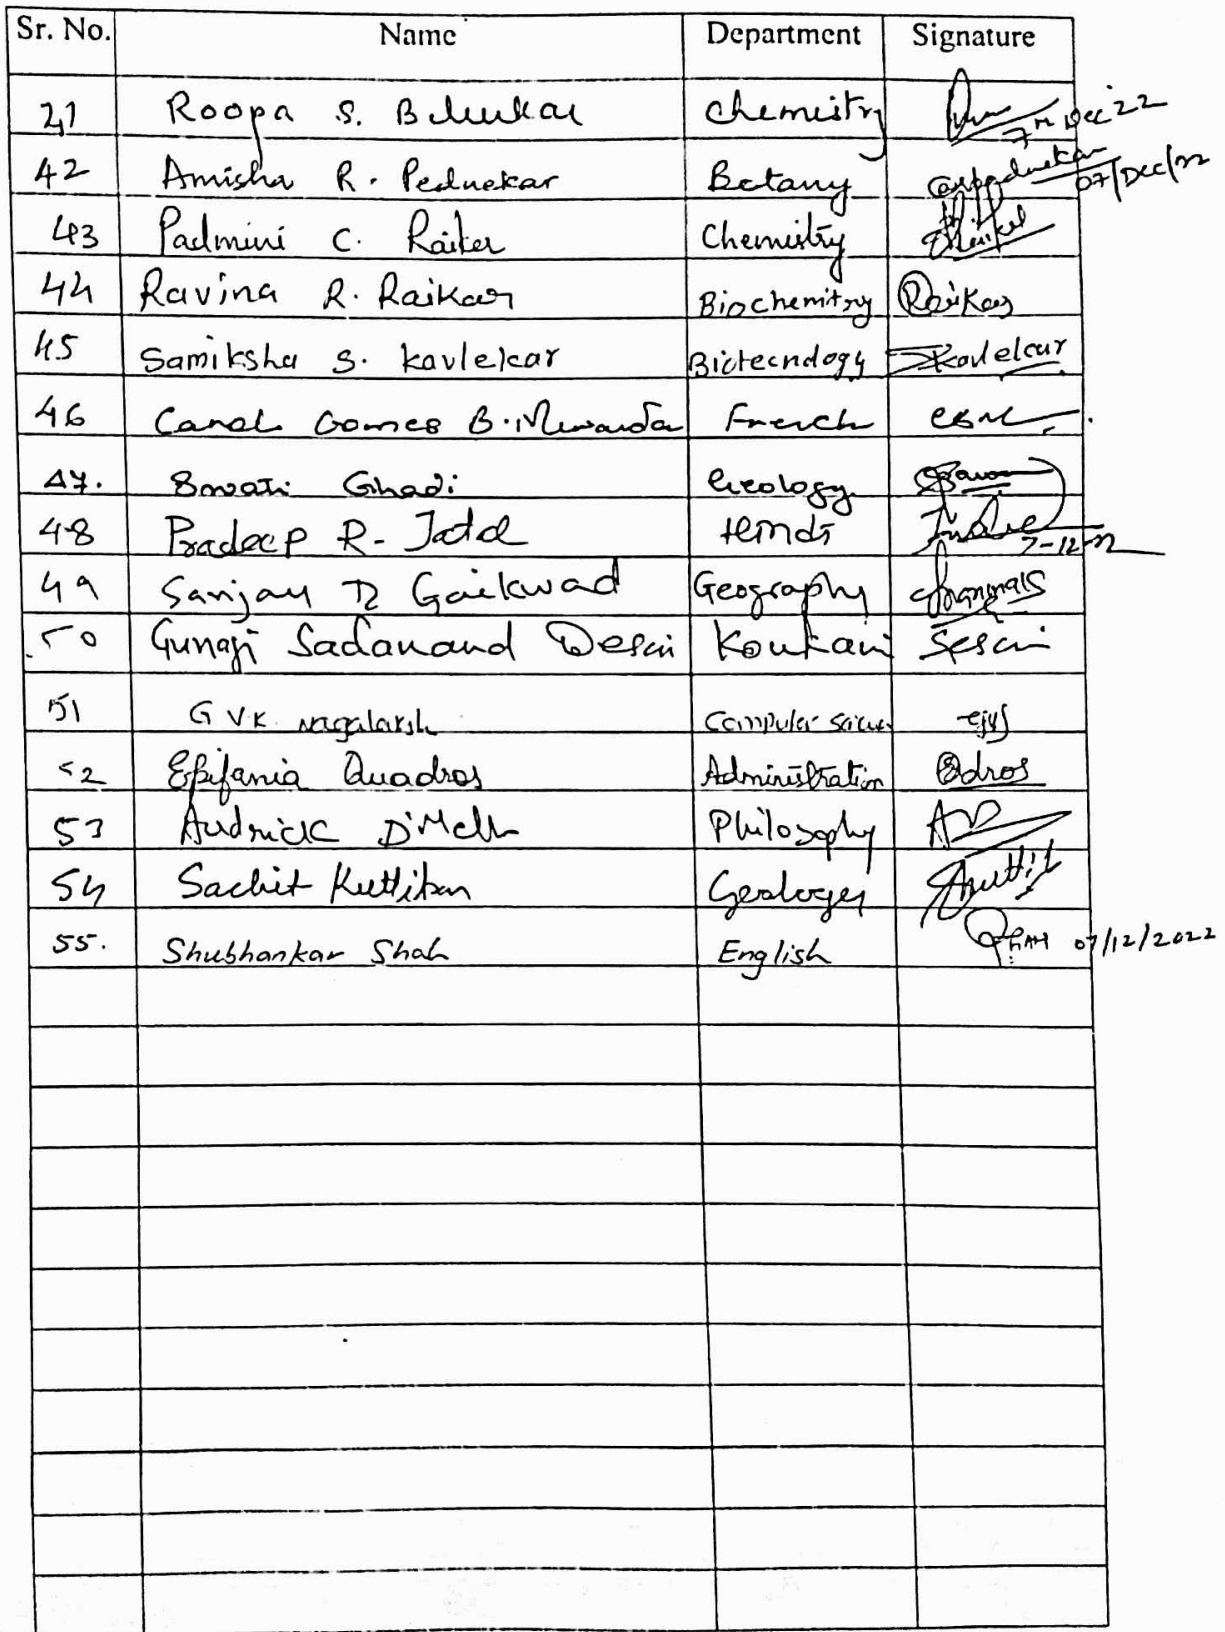 Sr. No. Name Department Signature
41 Roopa S. Belurkar Chemistry 7th Dec 22
42 Amisha R. Pednekar Botany 07/Dec/22
43 Padmini C. Raikar Chemistry
44 Ravina R. Raikar Biochemitry Raikar
45 Samiksha S. Kavlekar Biotecnology Skavlekar
46 Carol Gomes B. Miranda French CGM
47. Swati Ghadi Geology
48 Pradeep R. Jatal Hindi 7-12-22
49 Sanjay D Gaikwad Geography
50 Gunaji Sadanand Desai Konkani Desai
51 G V K nagalaksh Computer science
52 Epifania Quadros Administration Qdros
53 Audrick D'Mello Philosophy AD
54 Sachit Kuttikar Geology
55. Shubhankar Shah English Shah 07/12/2022